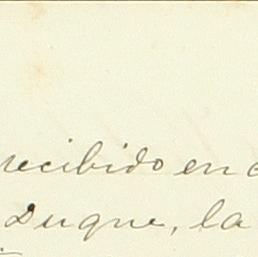 recibido en
Duque, la